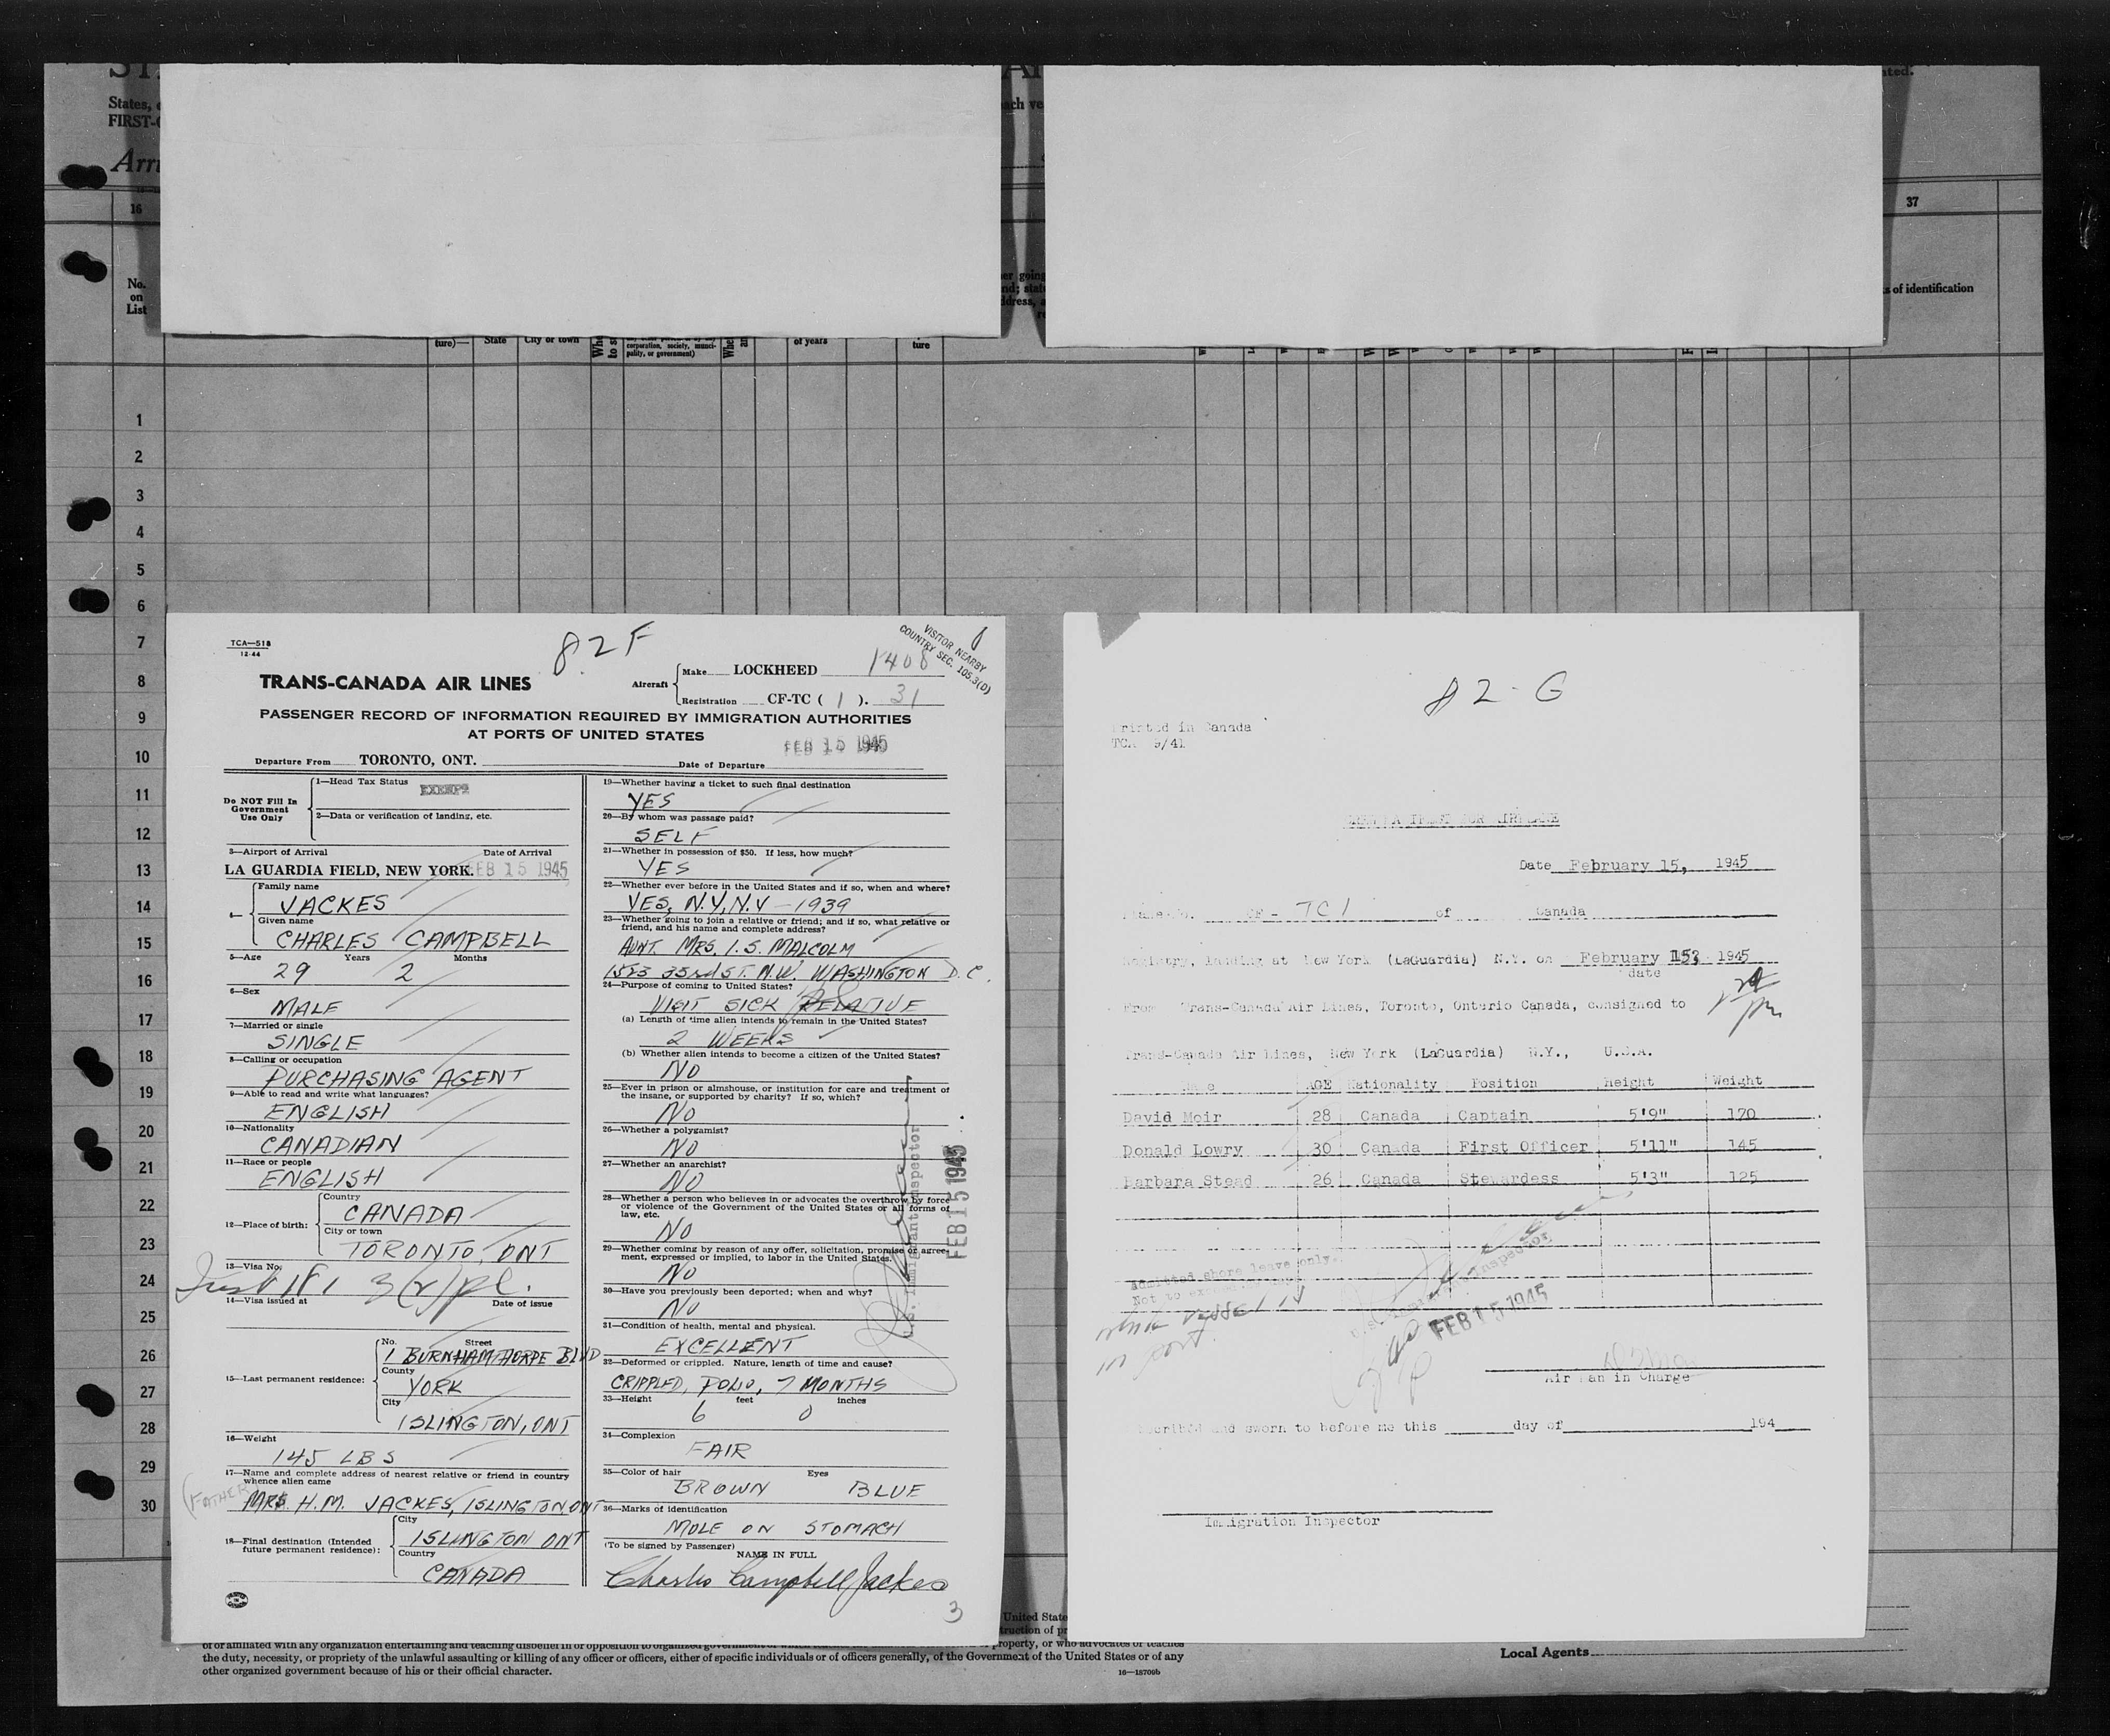 States,
FIRST-
ated.
Arri
16
37
No.
on
List
s of identification
ture)—
State
City or town
corporation, society, munici-
pality, or government)
of years
ture
1
2
3
4
5
6
7
8
9
10
11
12
13
14
15
16
17
18
19
20
21
22
23
24
25
26
27
28
29
30
TCA—518
12-44
82F
VISITOR NEARBY
COUNTRY SEC. 105.3(D)
TRANS-CANADA AIR LINES
Aircraft
Make LOCKHEED 1408
Registration CF-TC ( 1 ). 31
PASSENGER RECORD OF INFORMATION REQUIRED BY IMMIGRATION AUTHORITIES
AT PORTS OF UNITED STATES
FEB 15 1945
Departure From TORONTO, ONT. Date of Departure
Do NOT Fill In
Government
Use Only
1—Head Tax Status
EXEMPT
2—Data or verification of landing, etc.
3—Airport of Arrival Date of Arrival
LA GUARDIA FIELD, NEW YORK. FEB 15 1945
4—
Family name
JACKES
Given name
CHARLES CAMPBELL
5—Age Years Months
29 2
6—Sex
MALE
7—Married or single
SINGLE
8—Calling or occupation
PURCHASING AGENT
9—Able to read and write what languages?
ENGLISH
10—Nationality
CANADIAN
11—Race or people
ENGLISH
12—Place of birth:
Country
CANADA
City or town
TORONTO, ONT
13—Visa No.
3(2)
14—Visa issued at Date of issue
15—Last permanent residence:
No. Street
1 BURNHAMTHORPE BLVD
County
YORK
City
ISLINGTON, ONT
16—Weight
145 LBS
17—Name and complete address of nearest relative or friend in country
whence alien came
(FATHER)
H.M. JACKES, ISLINGTON, ONT
18—Final destination (Intended
future permanent residence):
City
ISLINGTON ONT
Country
CANADA
19—Whether having a ticket to such final destination
YES
20—By whom was passage paid?
SELF
21—Whether in possession of $50. If less, how much?
YES
22—Whether ever before in the United States and if so, when and where?
YES, N.Y, N.Y — 1939
23—Whether going to join a relative or friend; and if so, what relative or
friend, and his name and complete address?
AUNT. MRS. I. S. MALCOLM
1523 33rd ST. N.W. WASHINGTON D.C.
24—Purpose of coming to United States?
VISIT SICK RELATIVE
(a) Length of time alien intends to remain in the United States?
2 WEEKS
(b) Whether alien intends to become a citizen of the United States?
NO
25—Ever in prison or almshouse, or institution for care and treatment of
the insane, or supported by charity? If so, which?
NO
26—Whether a polygamist?
NO
27—Whether an anarchist?
NO
28—Whether a person who believes in or advocates the overthrow by force
or violence of the Government of the United States or all forms of
law, etc.
NO
29—Whether coming by reason of any offer, solicitation, promise or agree-
ment, expressed or implied, to labor in the United States.
NO
30—Have you previously been deported; when and why?
NO
31—Condition of health, mental and physical.
EXCELLENT
32—Deformed or crippled. Nature, length of time and cause?
CRIPPLED, POLIO, 7 MONTHS
33—Height feet inches
6 0
34—Complexion
FAIR
35—Color of hair Eyes
BROWN BLUE
36—Marks of identification
MOLE ON STOMACH
(To be signed by Passenger)
NAME IN FULL
Charles Campbell Jackes
3
U.S. Immigrant Inspector
FEB 15 1945
82-G
Printed in Canada
TCA 9/41
CREW MANIFEST FOR AIRPLANE
Date February 15, 1945
Plane No. CF - TC1 of Canada
Registry, landing at New York (LaGuardia) N.Y. on February 15, 1945
date
From Trans-Canada Air Lines, Toronto, Ontario Canada, consigned to
Trans-Canada Air Lines, New York (LaGuardia) N.Y., U.S.A.
Name AGE Nationality Position Height Weight
David Moir 28 Canada Captain 5'9" 170
Donald Lowry 30 Canada First Officer 5'11" 145
Barbara Stead 26 Canada Stewardess 5'3" 125
Admitted shore leave only.
Not to exceed
while vessel is
in port
U.S. Immigrant Inspector
FEB 15 1945
Air Man in Charge
Subscribed and sworn to before me this day of 194
Immigration Inspector
United State
of or affiliated with any organization entertaining and teaching disbelief in or opposition to organized government property, or who advocates or teaches
the duty, necessity, or propriety of the unlawful assaulting or killing of any officer or officers, either of specific individuals or of officers generally, of the Government of the United States or of any
other organized government because of his or their official character.
16—18709b
Local Agents